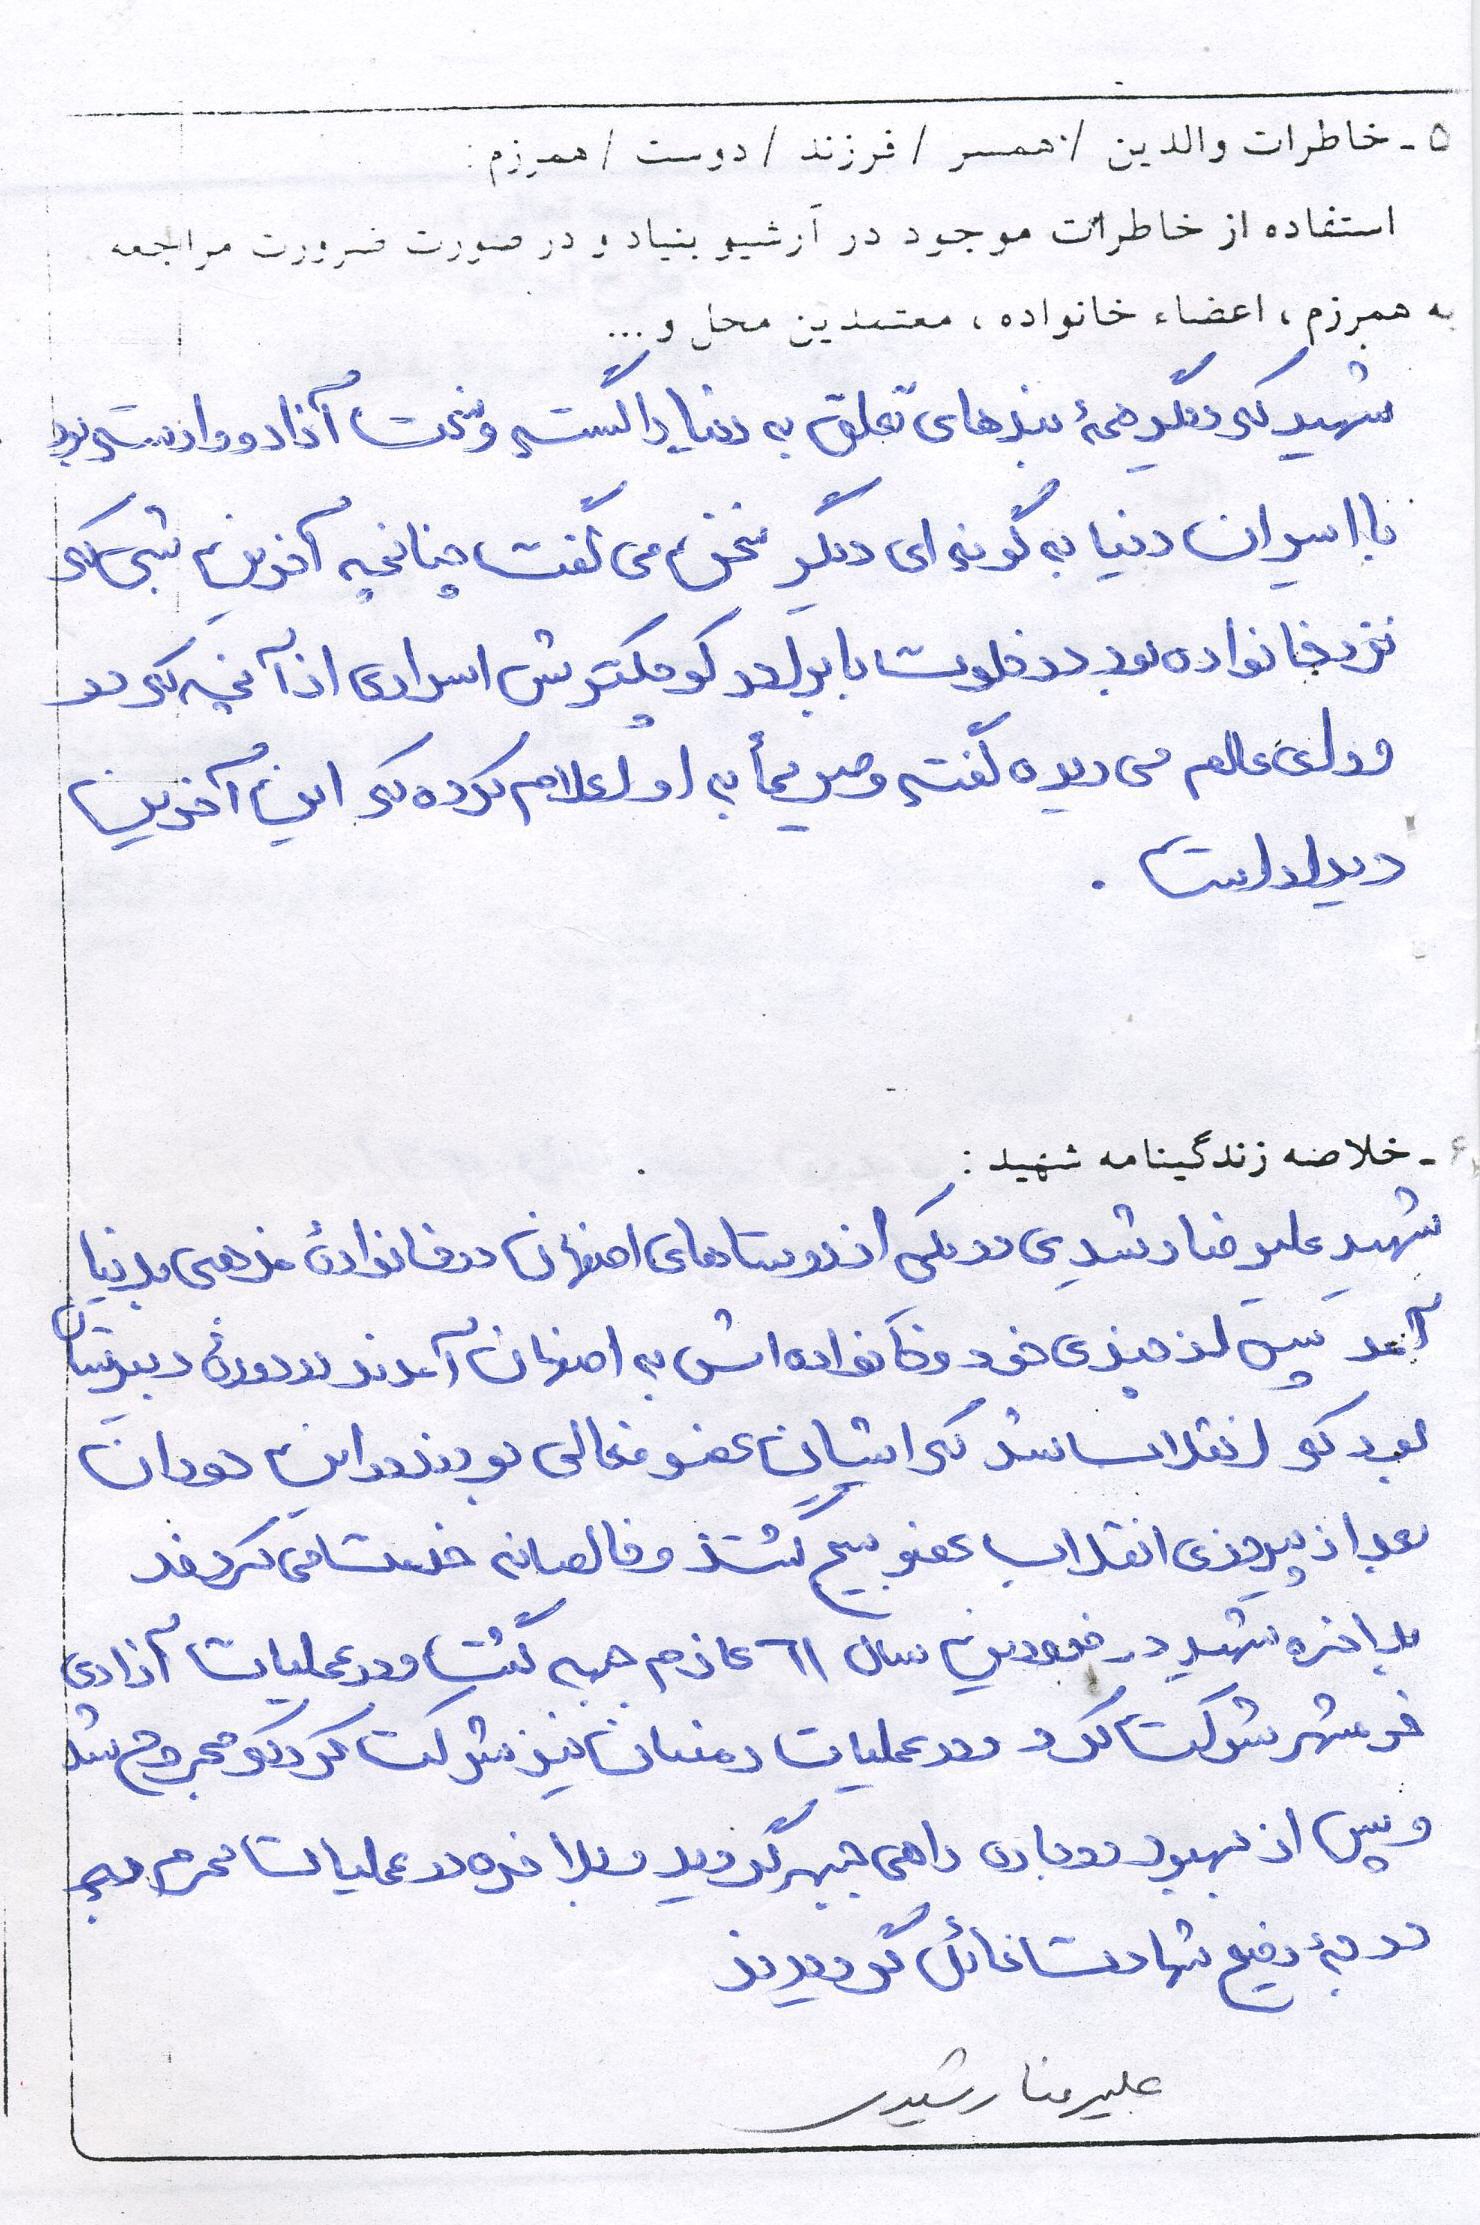 ۵ - خاطرات والدین / همسر / فرزند / دوست / همرزم :
استفاده از خاطرات موجود در آرشیو بنیاد و در صورت ضرورت مراجعه
به همرزم ، اعضاء خانواده ، معتمدین محل و ...
شهید که دیگر همهٔ بندهای تعلق به دنیا را گسسته و سخت آزاد و وارسته بود
با اسیران دنیا به گونه ای دیگر سخن می گفت چنانچه آخرین شبی که
نزد خانواده بود در خلوت با برادر کوچکترش اسراری از آنچه که در
ورای عالم می دیده گفته و صریحأ به او اعلام کرده که این آخرین
دیدار است .
۶ - خلاصه زندگینامه شهید :
شهید علیرضا رشیدی در یکی از روستاهای اصفهان در خانوادهٔ مذهبی بدنیا
آمد پس از چندی خود و خانواده اش به اصفهان آمدند در دورهٔ دبیرستان
بود که انقلاب شد که ایشان عضو فعالی بودند در این دوران
بعد از پیروزی انقلاب عضو بسیج گشتند و خالصانه خدمت می کردند
بلاخره شهید در فروردین سال ٦١ عازم جبهه گشت و در عملیات آزادی
خرمشهر شرکت کرد و در عملیات رمضان نیز شرکت کرد که مجروح شد
و پس از بهبود دوباره راهی جبهه گردید و بلاخره در عملیات محرم به
درجهٔ رفیع شهادت نائل گردیدند
علیرضا رشیدی